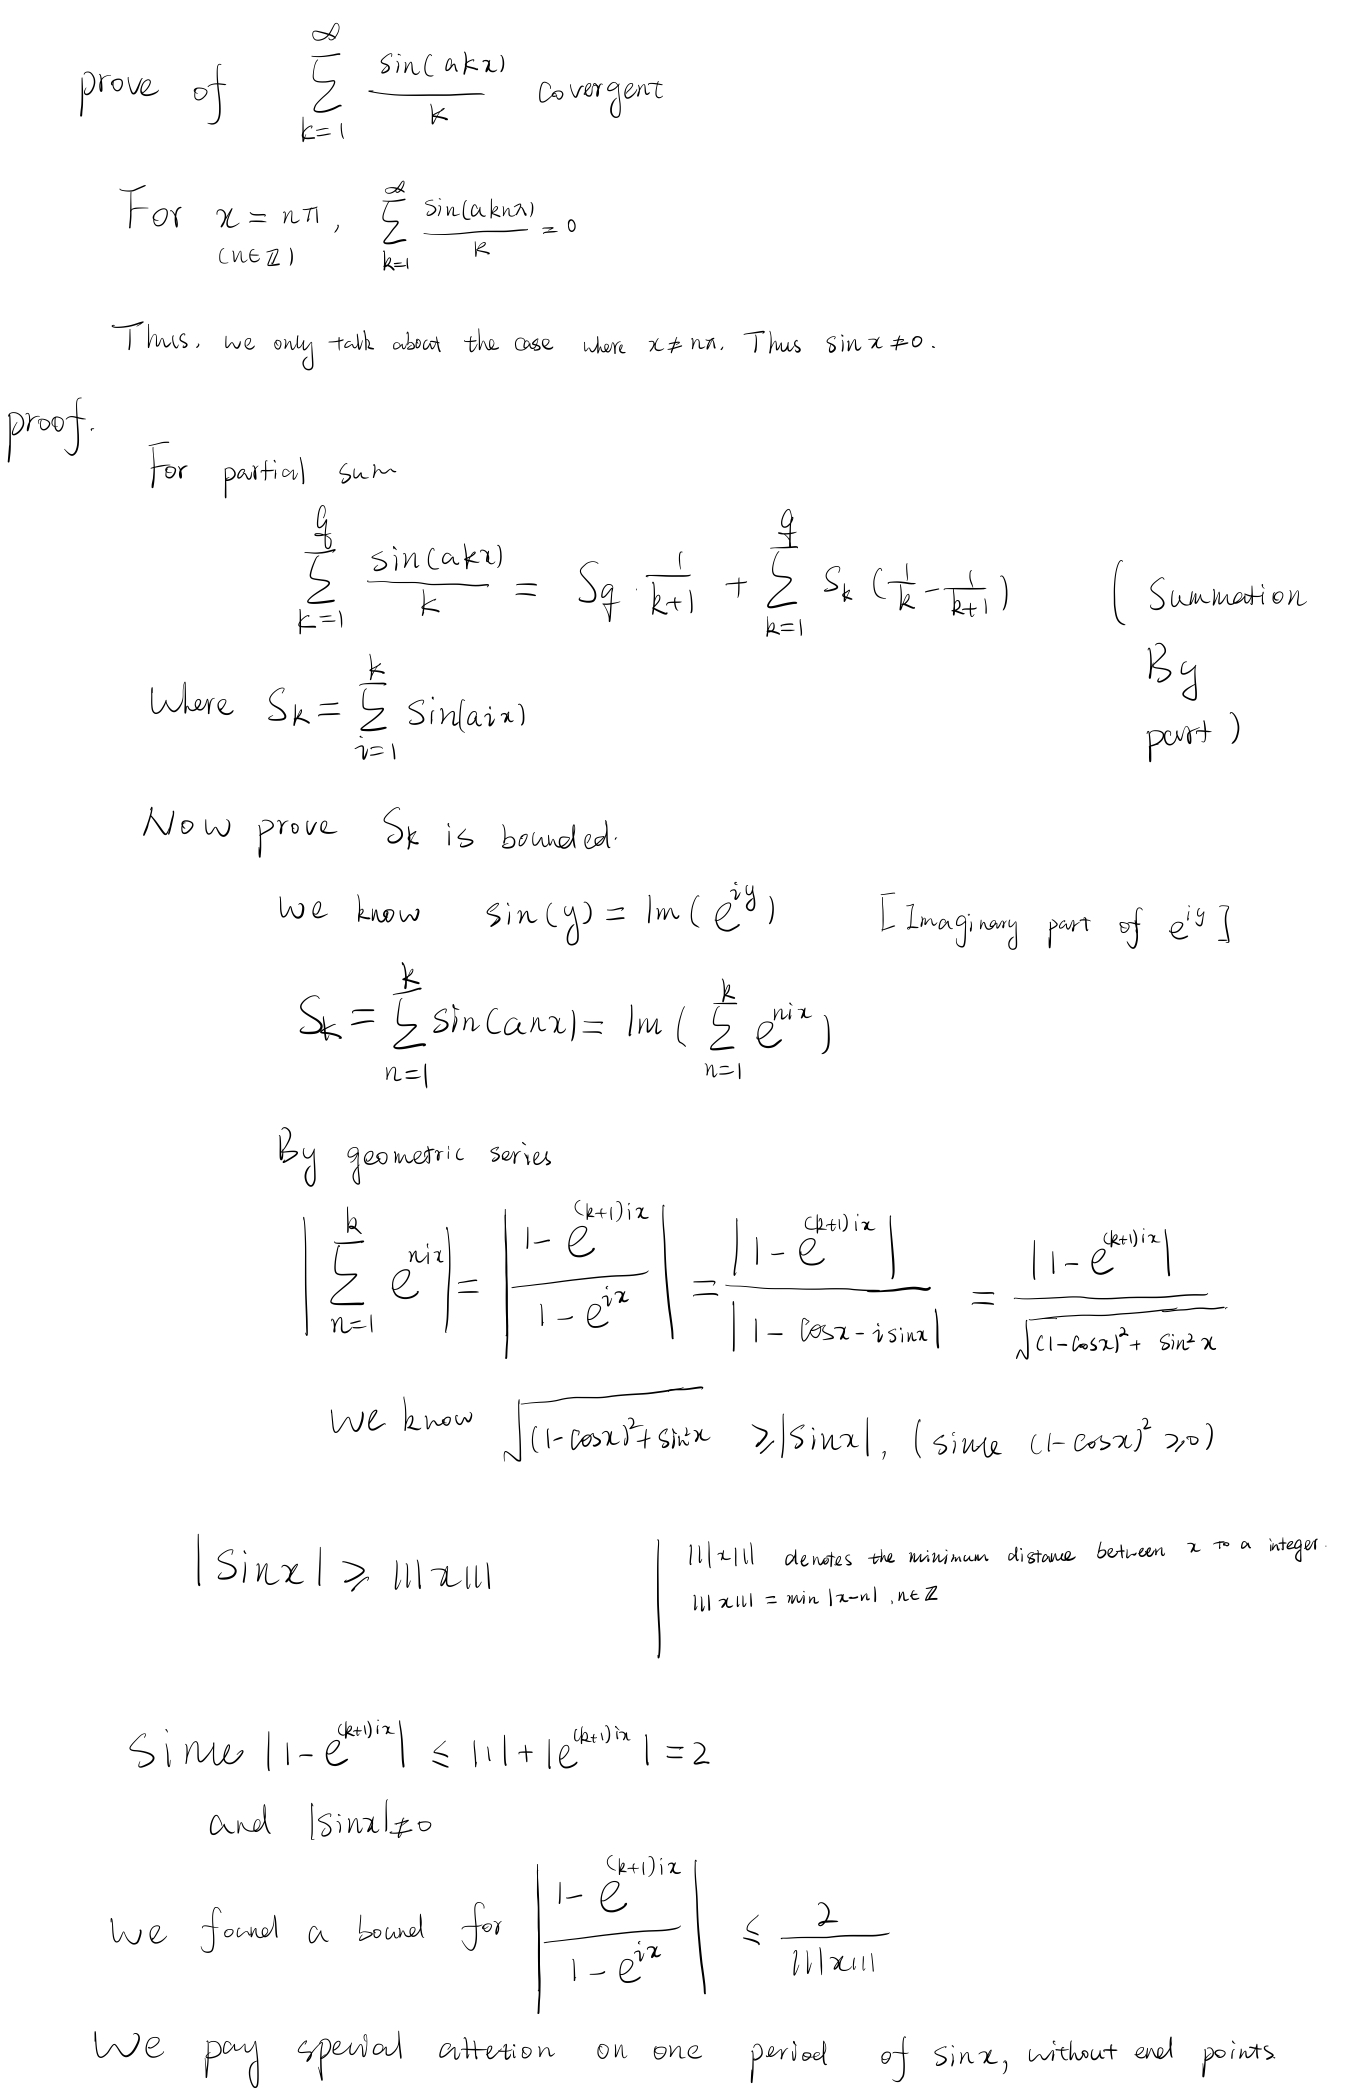 prove of \sum_{k=1}^{\infty} \frac{sin(akx)}{k} covergent
For x = nπ, \sum_{k=1}^{\infty} \frac{sin(aknπ)}{k} = 0
(n∈ℤ)
Thus, we only talk about the case where x≠nπ. Thus sin x ≠0.
proof.
For partial sum
\sum_{k=1}^{q} \frac{sin(akx)}{k} = S_q · \frac{1}{k+1} + \sum_{k=1}^{q} S_k (\frac{1}{k} - \frac{1}{k+1}) ( Summation
By
part )
Where S_k = \sum_{i=1}^{k} Sin(aix)
Now prove S_k is bounded.
We know sin(y) = Im( e^{iy} ) [Imaginary part of e^{iy}]
S_k = \sum_{n=1}^{k} sin(anx) = Im ( \sum_{n=1}^{k} e^{nix} )
By geometric series
| \sum_{n=1}^{k} e^{nix} | = | \frac{1-e^{(k+1)ix}}{1-e^{ix}} | = \frac{|1-e^{(k+1)ix}|}{|1-cosx-isinx|} = \frac{|1-e^{(k+1)ix}|}{\sqrt{(1-cosx)^2 + sin^2 x}}
we know \sqrt{(1-cosx)^2+sin^2 x} ≥ |sinx|, (since (1-cosx)^2 ≥0)
|sinx| ≥ |||x||| | |||x||| denotes the minimum distance between x to a integer.
|||x||| = min |x-n| , n∈ℤ
Since |1-e^{(k+1)ix}| ≤ |1|+|e^{(k+1)ix}| = 2
and |sinx|≠0
We found a bound for | \frac{1-e^{(k+1)ix}}{1-e^{ix}} | ≤ \frac{2}{|||x|||}
We pay special attetion on one period of sinx, without end points